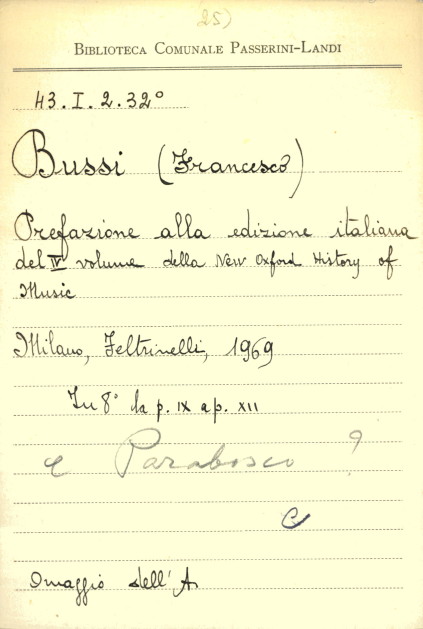 25)
BIBLIOTECA COMUNALE PASSERINI-LANDI
43. I. 2. 32°
Bussi (Francesco)
Prefazione alla edizione italiana
del IV volume della New Oxford History of
Music
Milano, Feltrinelli, 1969
In 8° da p. IX a p. XII
e Parabosco ?
C
Omaggio dell'A